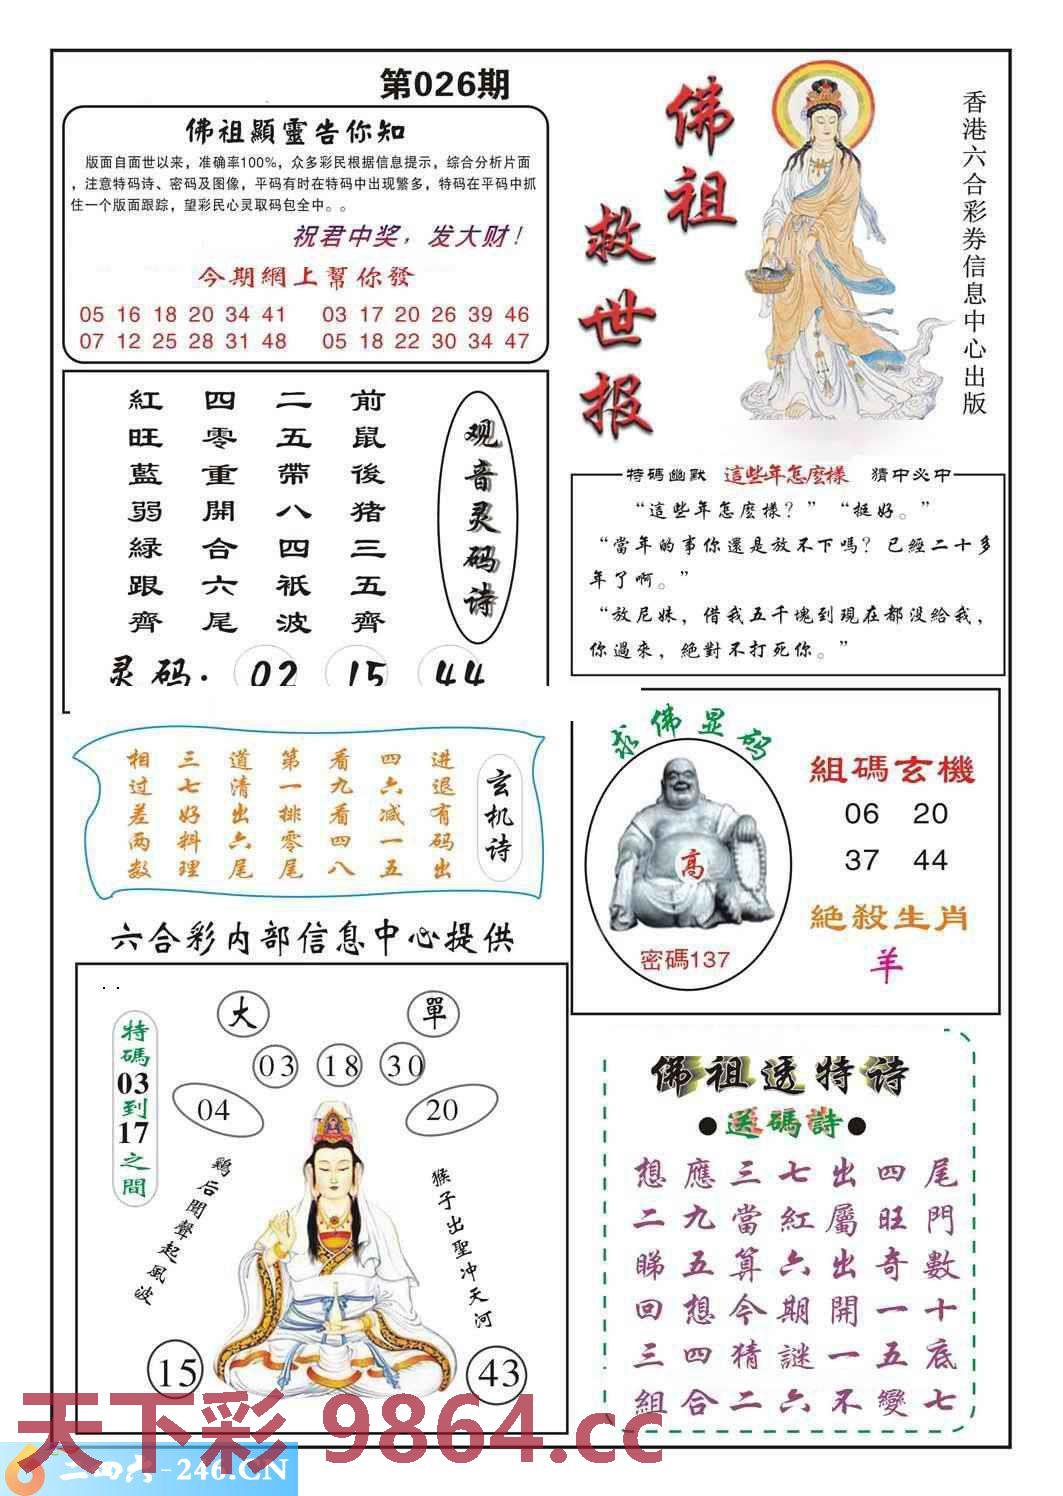 第026期
佛祖顯靈告你知
版面自面世以来，准确率100%，众多彩民根据信息提示，综合分析片面
，注意特码诗、密码及图像，平码有时在特码中出现繁多，特码在平码中抓
住一个版面跟踪，望彩民心灵取码包全中。。
祝君中奖，发大财！
今期網上幫你發
05 16 18 20 34 41 03 17 20 26 39 46
07 12 25 28 31 48 05 18 22 30 34 47
佛祖
救世报
香港六合彩券信息中心出版
观音灵码诗
前鼠後猪三五齊
二五帶八四衹波
四零重開合六尾
紅旺藍弱緑跟齊
灵码：02 15 44
特碼幽默 這些年怎麽樣 猜中必中
“這些年怎麽樣？”“挺好。”
“當年的事你還是放不下嗎？已經二十多
年了啊。”
“放尼妹，借我五千塊到現在都没給我，
你過來，絶對不打死你。”
玄机诗
进退有码出
四六减一五
看九看四八
第一排零尾
道清出六尾
三七好料理
相过差两数
求佛显码
高
密碼137
組碼玄機
06 20
37 44
絕殺生肖
羊
六合彩内部信息中心提供
大 單
03 18 30
04 20
特碼03到17之間
鷄后聞聲起風波
猴子出聖冲天河
15 43
佛祖透特诗
●送碼詩●
想應三七出四尾
二九當紅屬旺門
睇五算六出奇數
回想今期開一十
三四猜謎一五底
組合二六不變七
天下彩 9864.cc
二四六-246.CN